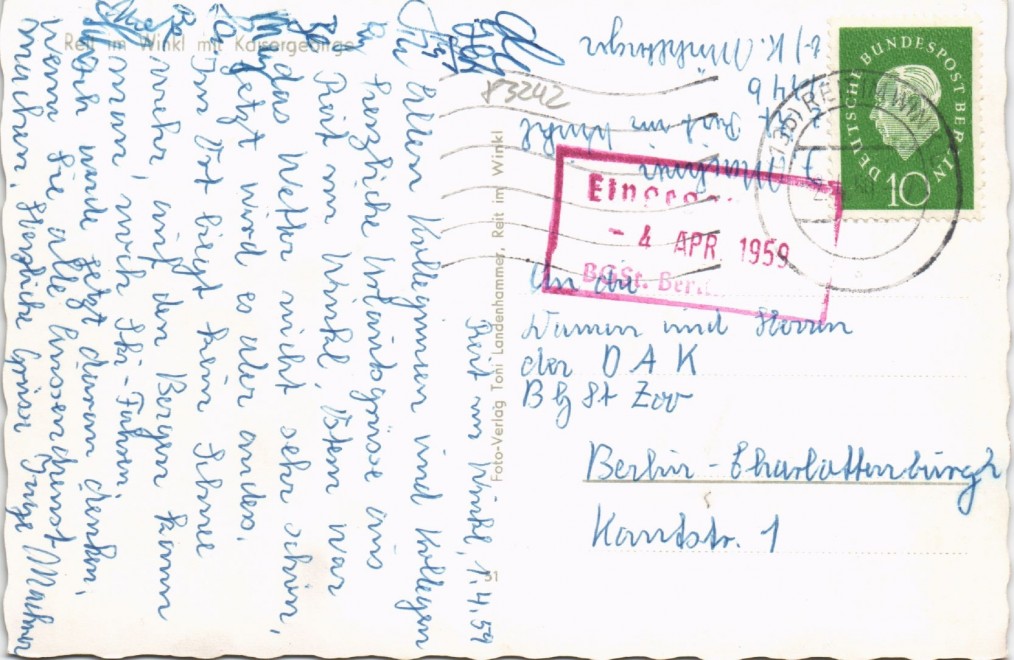 Reit im Winkl mit Kaisergebirge
Reit im Winkl, 1.4.59
Allen Kolleginnen und Kollegen
herzliche Urlaubsgrüsse aus
Reit im Winkl. Ostern war
das Wetter nicht sehr schön,
jetzt wird es aber anders.
Im Ort liegt kein Schnee
mehr, auf den Bergen kann
man noch Ski-Fahren.
Ich werde jetzt daran denken,
wenn Sie alle Aussendienst
machen. Herzliche Grüsse Inge
83242
Foto-Verlag Toni Landenhammer, Reit im Winkl
51
z. Zt. Reit im Winkl
b/K.
DEUTSCHE BUNDESPOST BERLIN
10
- 4 APR 1959
An die
Damen und Herren
der DAK
BGSt Zoo
Berlin-Charlottenburg
Kantstr. 1